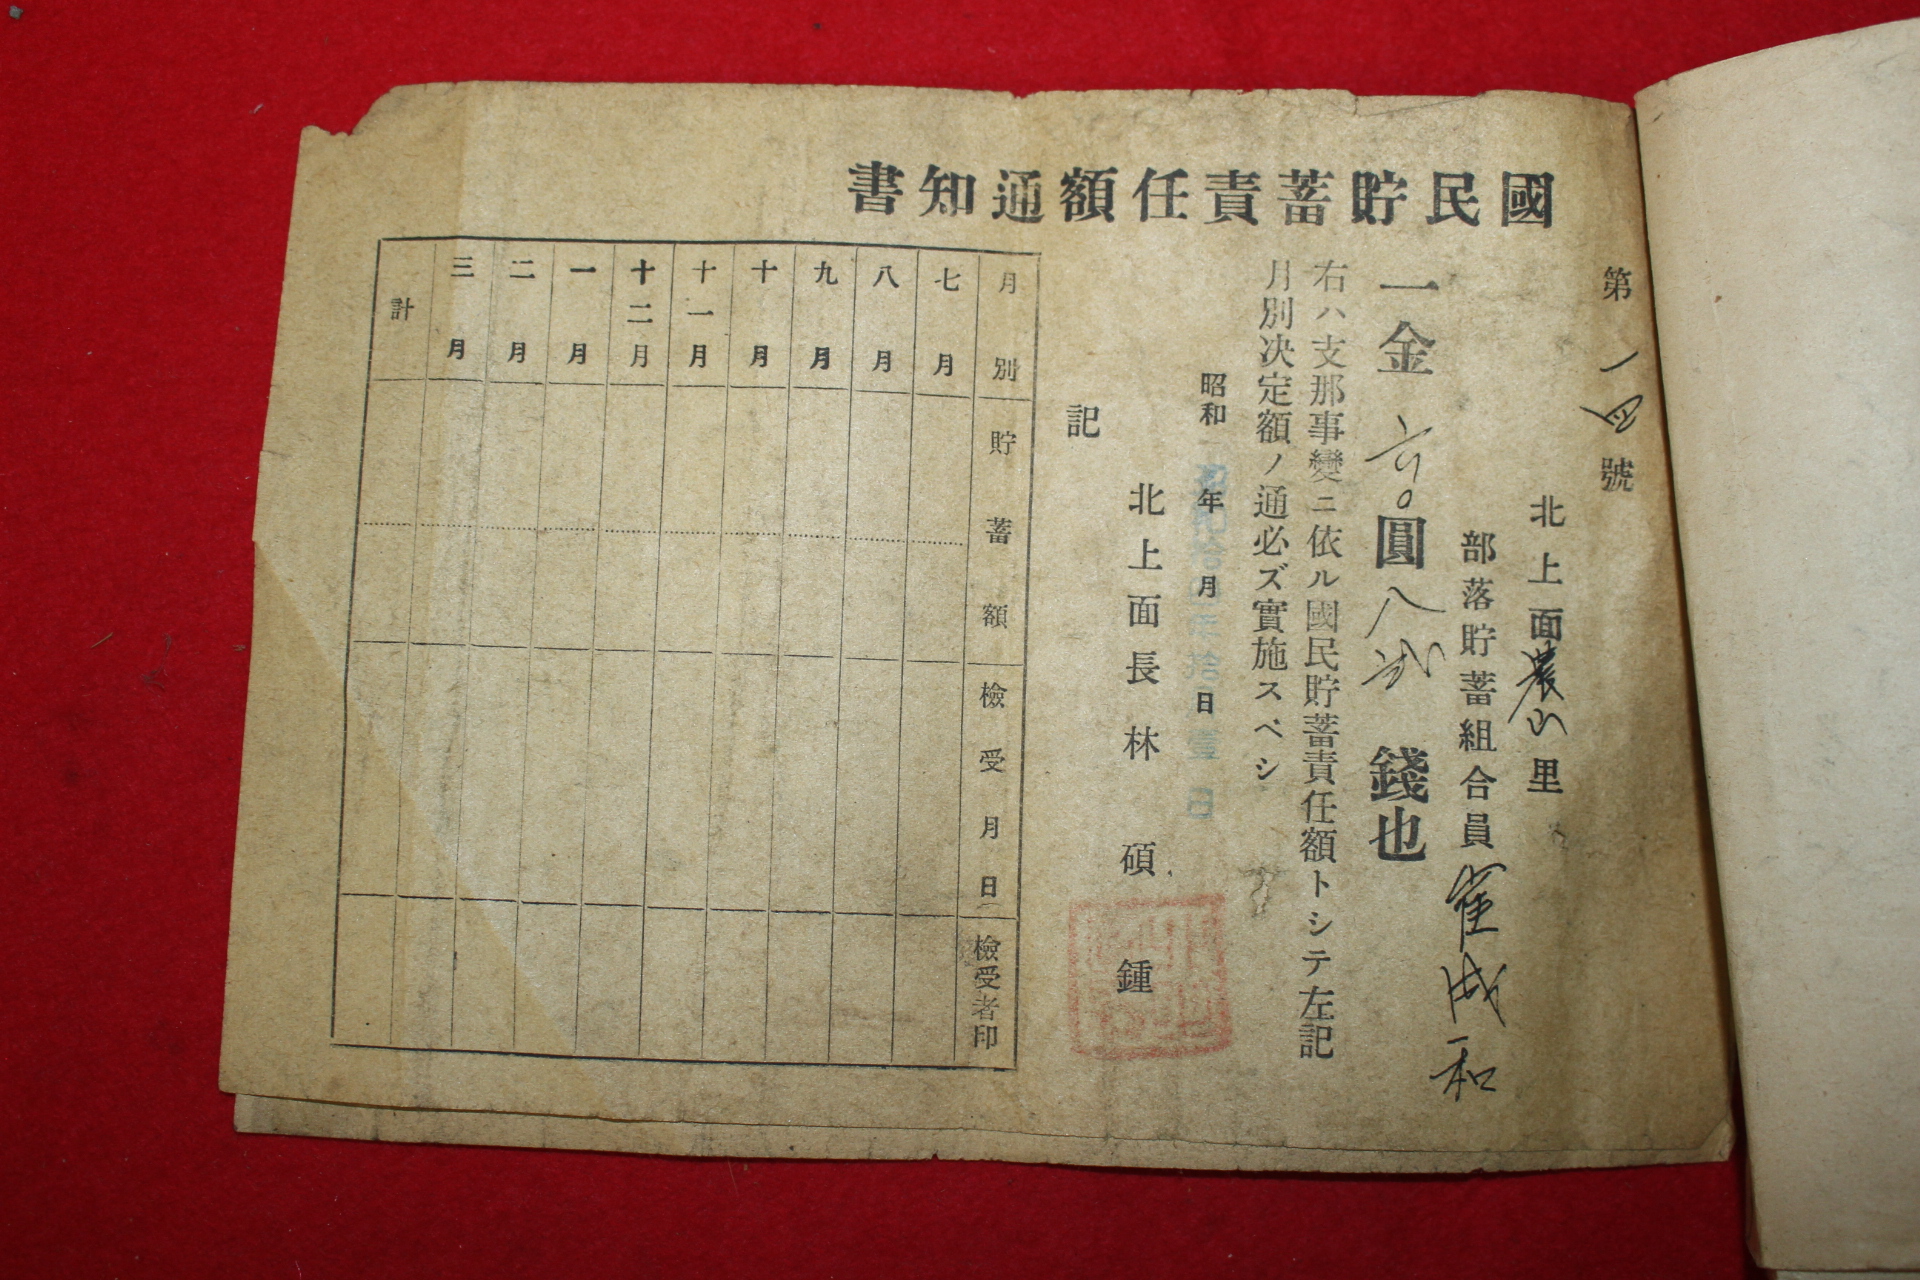 國民貯蓄責任額通知書
第一四號
北上面農山里
部落貯蓄組合員 崔成和
一金六〇圓八弐錢也
右ハ支那事變ニ依ル國民貯蓄責任額トシテ左記
月別決定額ノ通必ズ實施スベシ
昭和 年 月 日
北上面長 林 碩 鍾
記
月別 貯蓄額 檢受月日 檢受者印
七月
八月
九月
十月
十一月
十二月
一月
二月
三月
計